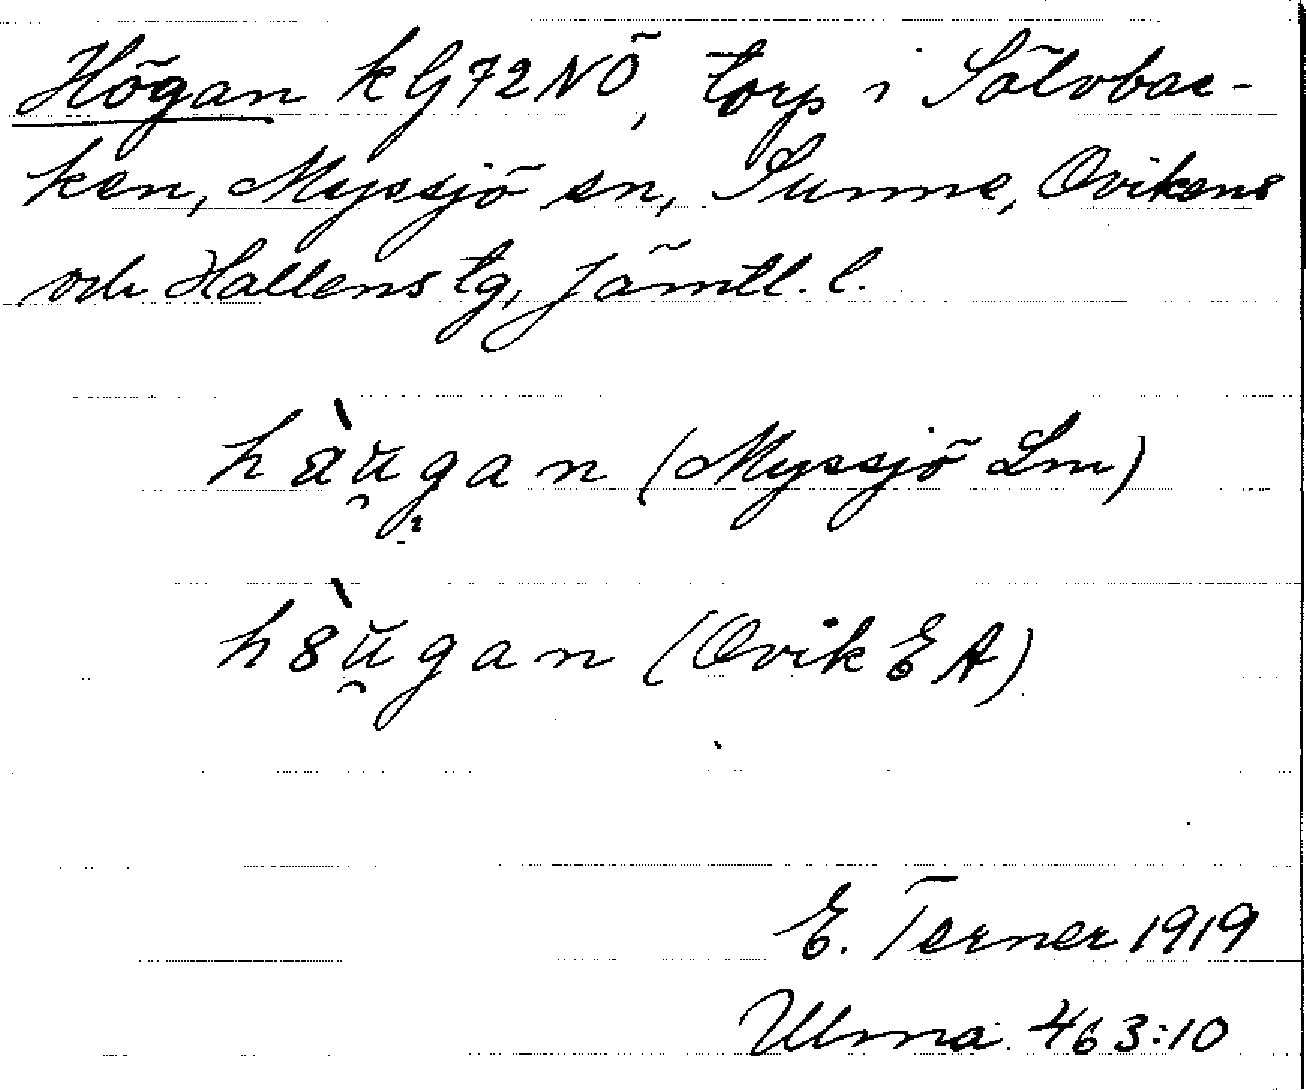 Högan kG72NÖ, torp i Sölvbac-
ken, Myssjö sn, Sunne, Ovikens
och Hallens tg, Jämtl. l.
hàu̯gan (Myssjö Lm)
u̯gan (Ovik EA)
E. Terner 1919
Ulma 463:10